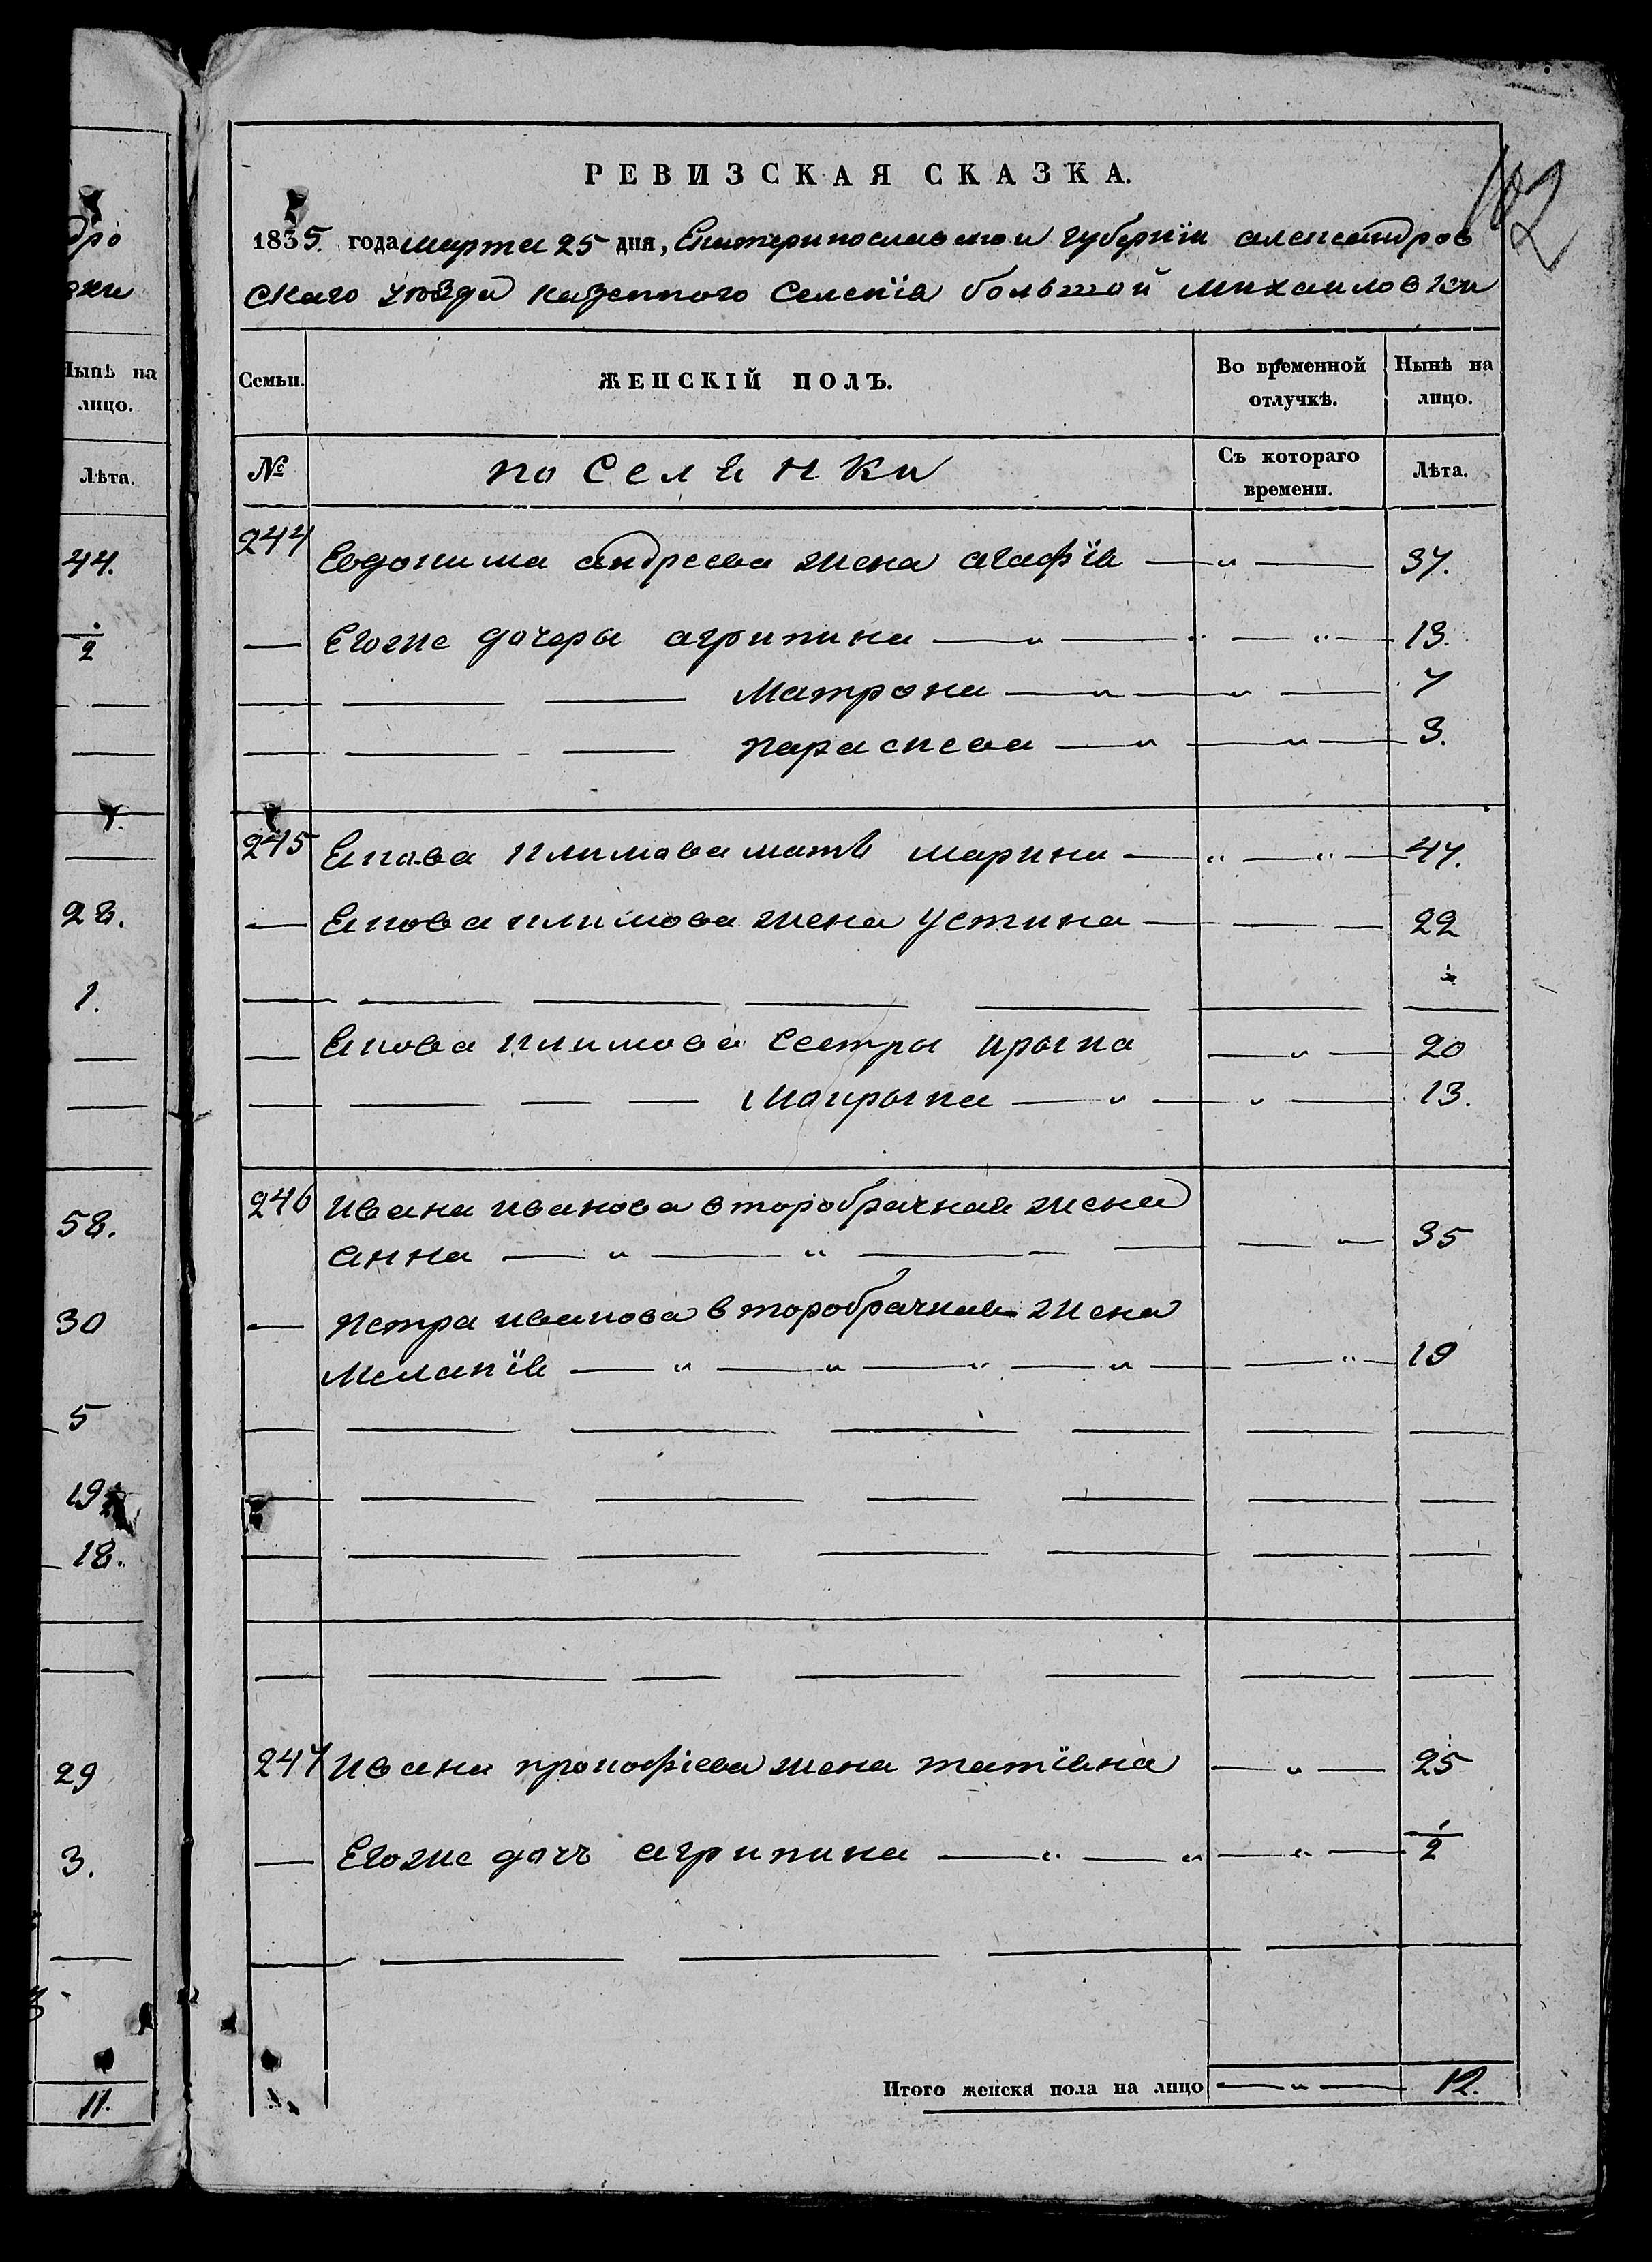 дро
вки
Нынѣ на
лицо.
Лѣта.
44.
1/2
28.
1.
58.
30
5
19
18.
29
3.
11.
182
РЕВИЗСКАЯ СКАЗКА.
1835. года марта 25 дня, Екатеринославской губернїи александров
скаго уѣзда казенного Селенїя большой михаиловки
Семьи.
ЖЕНСКІЙ ПОЛЪ.
Во временной
отлучкѣ.
Нынѣ на
лицо.
№
поселенки
Съ котораго
времени.
Лѣта.
244 Евдокима андреева жена агафїя — " — 37.
— Егоже дочеры агрипина — " — " — " — 13.
— — — Матрона — " — " — 7
— — — параскева — " — " — 3.
245 Якова климова мать марина — " — " — 47.
— Якова климова жена устина — — — 22
Якова климова Сестры ирына — " — 20
— — — — Маирына — " — " — 13.
246 ивана иванова второбрачная жена
анна — " — " — — — — " — 35
— петра иванова второбрачная жена
меланїя — " — " — " — " — — " — 19
247 ивана прокофіева жена татїяна — " — 25
— Егоже дочь агрипина — " — " — " — 1/2
Итого женска пола на лицо — " — 12.